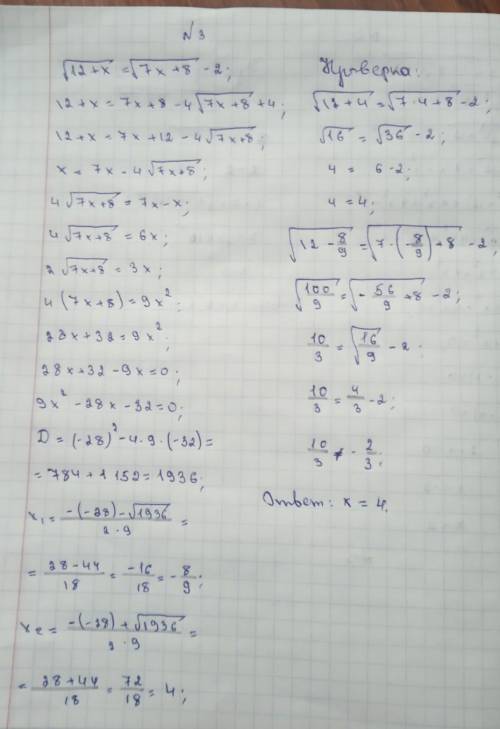 № 3
√(12+x) = √(7x+8) - 2;
12+x = 7x+8 - 4√(7x+8) + 4;
12+x = 7x+12 - 4√(7x+8);
x = 7x - 4√(7x+8);
4√(7x+8) = 7x - x;
4√(7x+8) = 6x;
2√(7x+8) = 3x;
4(7x+8) = 9x²;
28x+32 = 9x²;
28x+32-9x=0;
9x² - 28x - 32 = 0;
D = (-28)² - 4·9·(-32) =
= 784 + 1152 = 1936;
x₁ = (-(-28) - √1936)/(2·9) =
= (28-44)/18 = -16/18 = -8/9;
x₂ = (-(-28) + √1936)/(2·9) =
= (28+44)/18 = 72/18 = 4;
Проверка:
√(12+4) = √(7·4+8) - 2;
√16 = √36 - 2;
4 = 6-2;
4 = 4;
√(12 - 8/9) = √(7·(-8/9)+8) - 2;
√(100/9) = √(-56/9 + 8) - 2;
10/3 = √(16/9) - 2
10/3 = 4/3 - 2;
10/3 ≠ -2/3;
Ответ: x = 4.